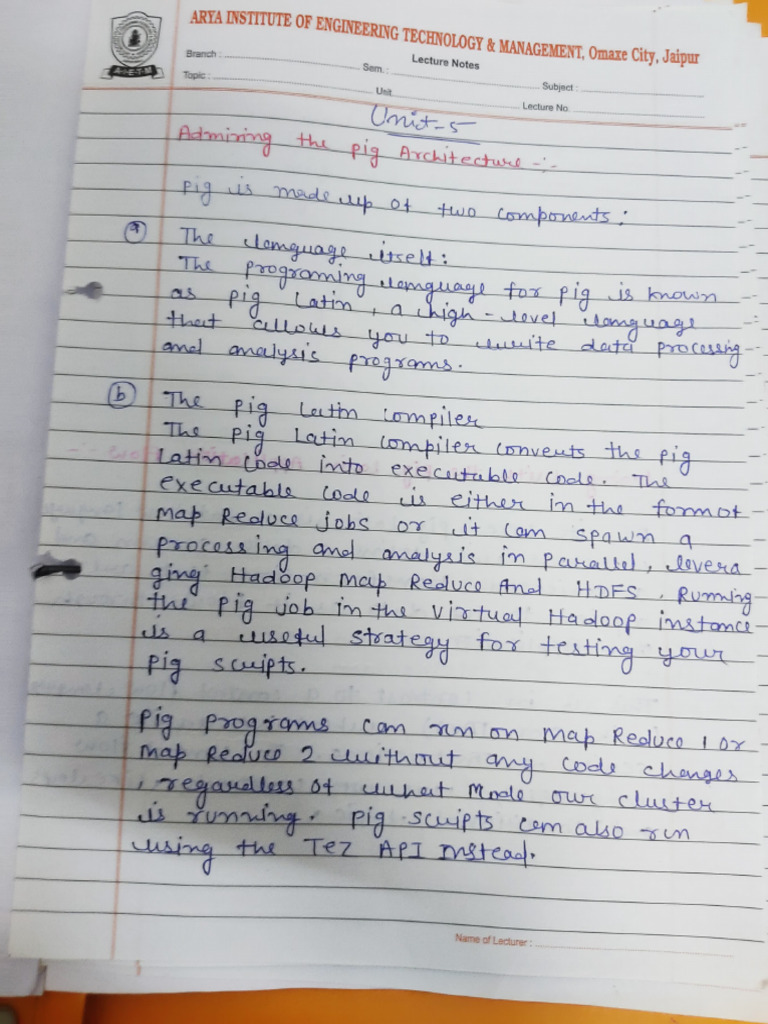 ARYA INSTITUTE OF ENGINEERING TECHNOLOGY & MANAGEMENT, Omaxe City, Jaipur
Lecture Notes
Branch : Sem. : Subject :
Topic : Unit Lecture No.
A·I·E·T·M
Unit-5
Admiring the pig Architecture -:-
Pig is made up of two components:
(a) The language itself:
The programing language for pig is known
as pig Latin, a high-level language
that allows you to write data processing
and analysis programs.
(b) The pig Latin compiler
The pig Latin compiler converts the pig
Latin code into executable code. The
executable code is either in the form of
map Reduce jobs or it can spawn a
processing and analysis in parallel, levera
ging Hadoop map Reduce And HDFS. Running
the pig job in the virtual Hadoop instance
is a useful strategy for testing your
pig scripts.
Pig programs can run on map Reduce 1 or
map Reduce 2 without any code changes
, regardless of what mode our cluster
is running. pig scripts can also run
using the Tez API instead.
Name of Lecturer :